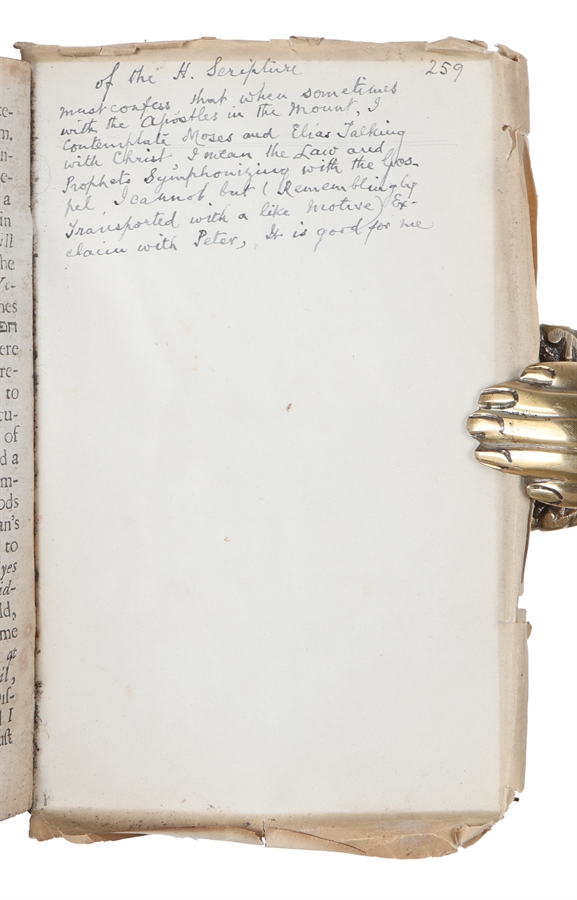 of the H. Scripture 259
must confess, that when sometimes
with the Apostles in the Mount, I
contemplate Moses and Elias Talking
with Christ, I mean the Law and
Prophets Symphonizing with the Gos-
pel, I cannot but (Rememblingly
Transported with a like Motive) Ex-
claim with Peter, It is good for me
e-
m.
n-
e-
a
in
ill
he
Vi-
nes
ere
re-
to
cu-
of
d a
m-
ods
an's
to
yes
id-
ld,
me
at
il,
Dis-
I
ust